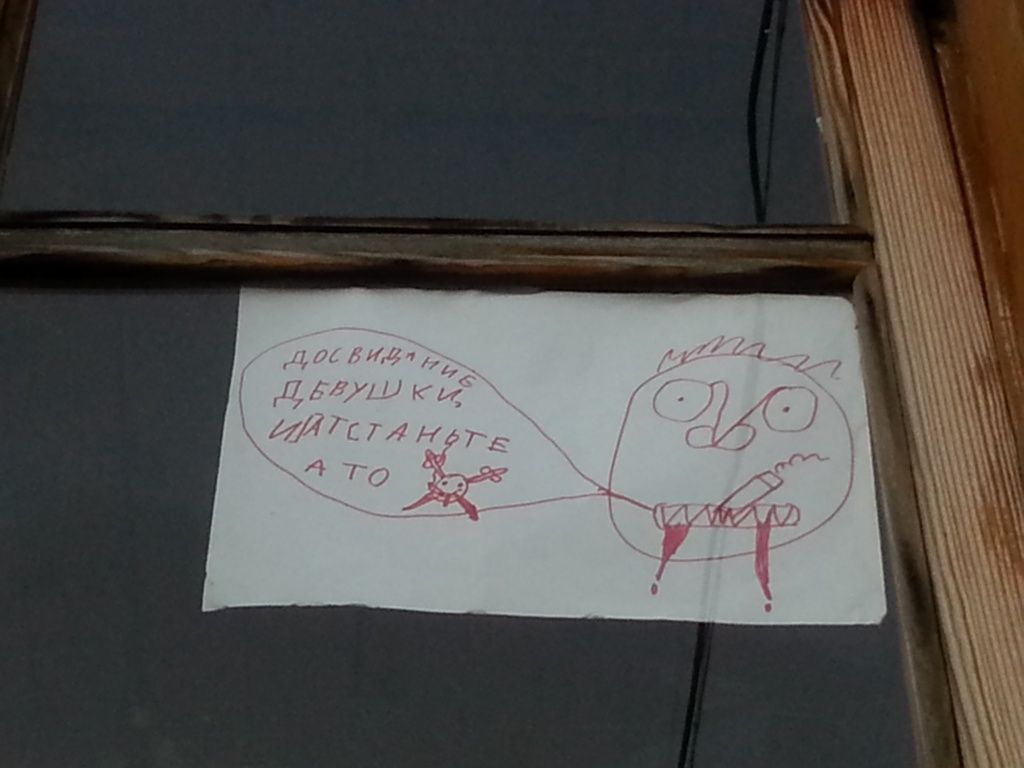 ДОСВИДАНИЕ
ДЕВУШКИ,
ИАТСТАНЬТЕ
А ТО